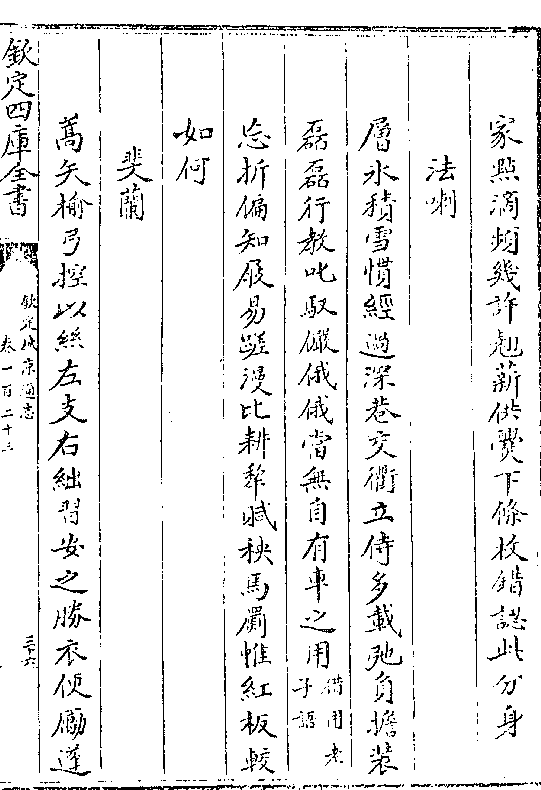 家點滴頻幾許翹薪供爨下條枚錯認此分身
法喇
層氷積雪慣經過深巷交衢立待多載弛負擔裝
磊磊行教叱馭儼俄俄當無自有車之用借用老子語
忘折偏知屐易蹉漫比耕犂贓秧馬罽帷紅板較
如何
斐蘭
蒿矢榆弓控以絲左支右絀習安之勝衣便勵蓬
欽定四庫全書
欽定盛京通志
卷一百二十三
三十六